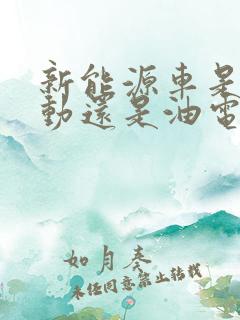 新能源车是
动还是油电
如月奏
未经同意禁止转载